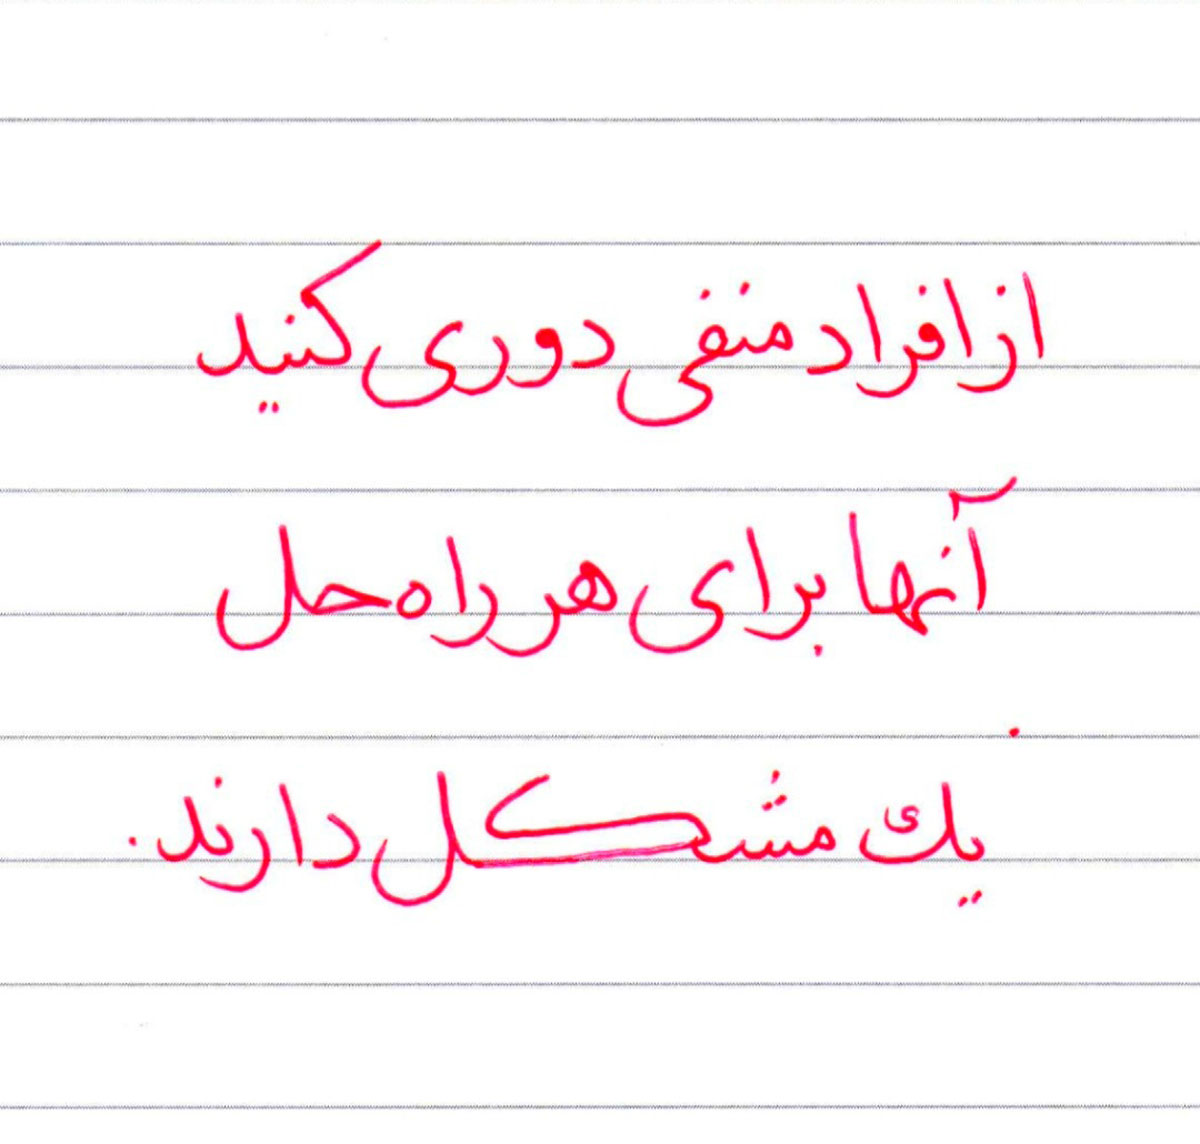 از افراد منفی دوری کنید
آنها برای هر راه حل
یك مشکل دارند.